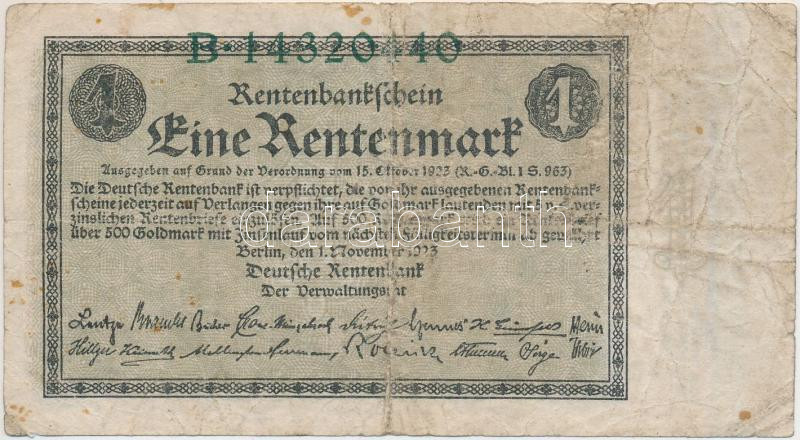 B·14320440
1
1
Rentenbankschein
Eine Rentenmark
Ausgegeben auf Grund der Verordnung vom 15. Oktober 1923 (R.-G.-Bl. I S. 963)
Die Deutsche Rentenbank ist verpflichtet, die von ihr ausgegebenen Rentenbank-
scheine jederzeit auf Verlangen gegen ihre auf Goldmark lautenden mit 5 v.H. ver-
zinslichen Rentenbriefe einzulösen. Auf 500
über 500 Goldmark mit Zinsenlauf vom nächsten Fälligkeitstermin ab gewährt
Berlin, den 1. November 1923
Deutsche Rentenbank
Der Verwaltungsrat
darabanth